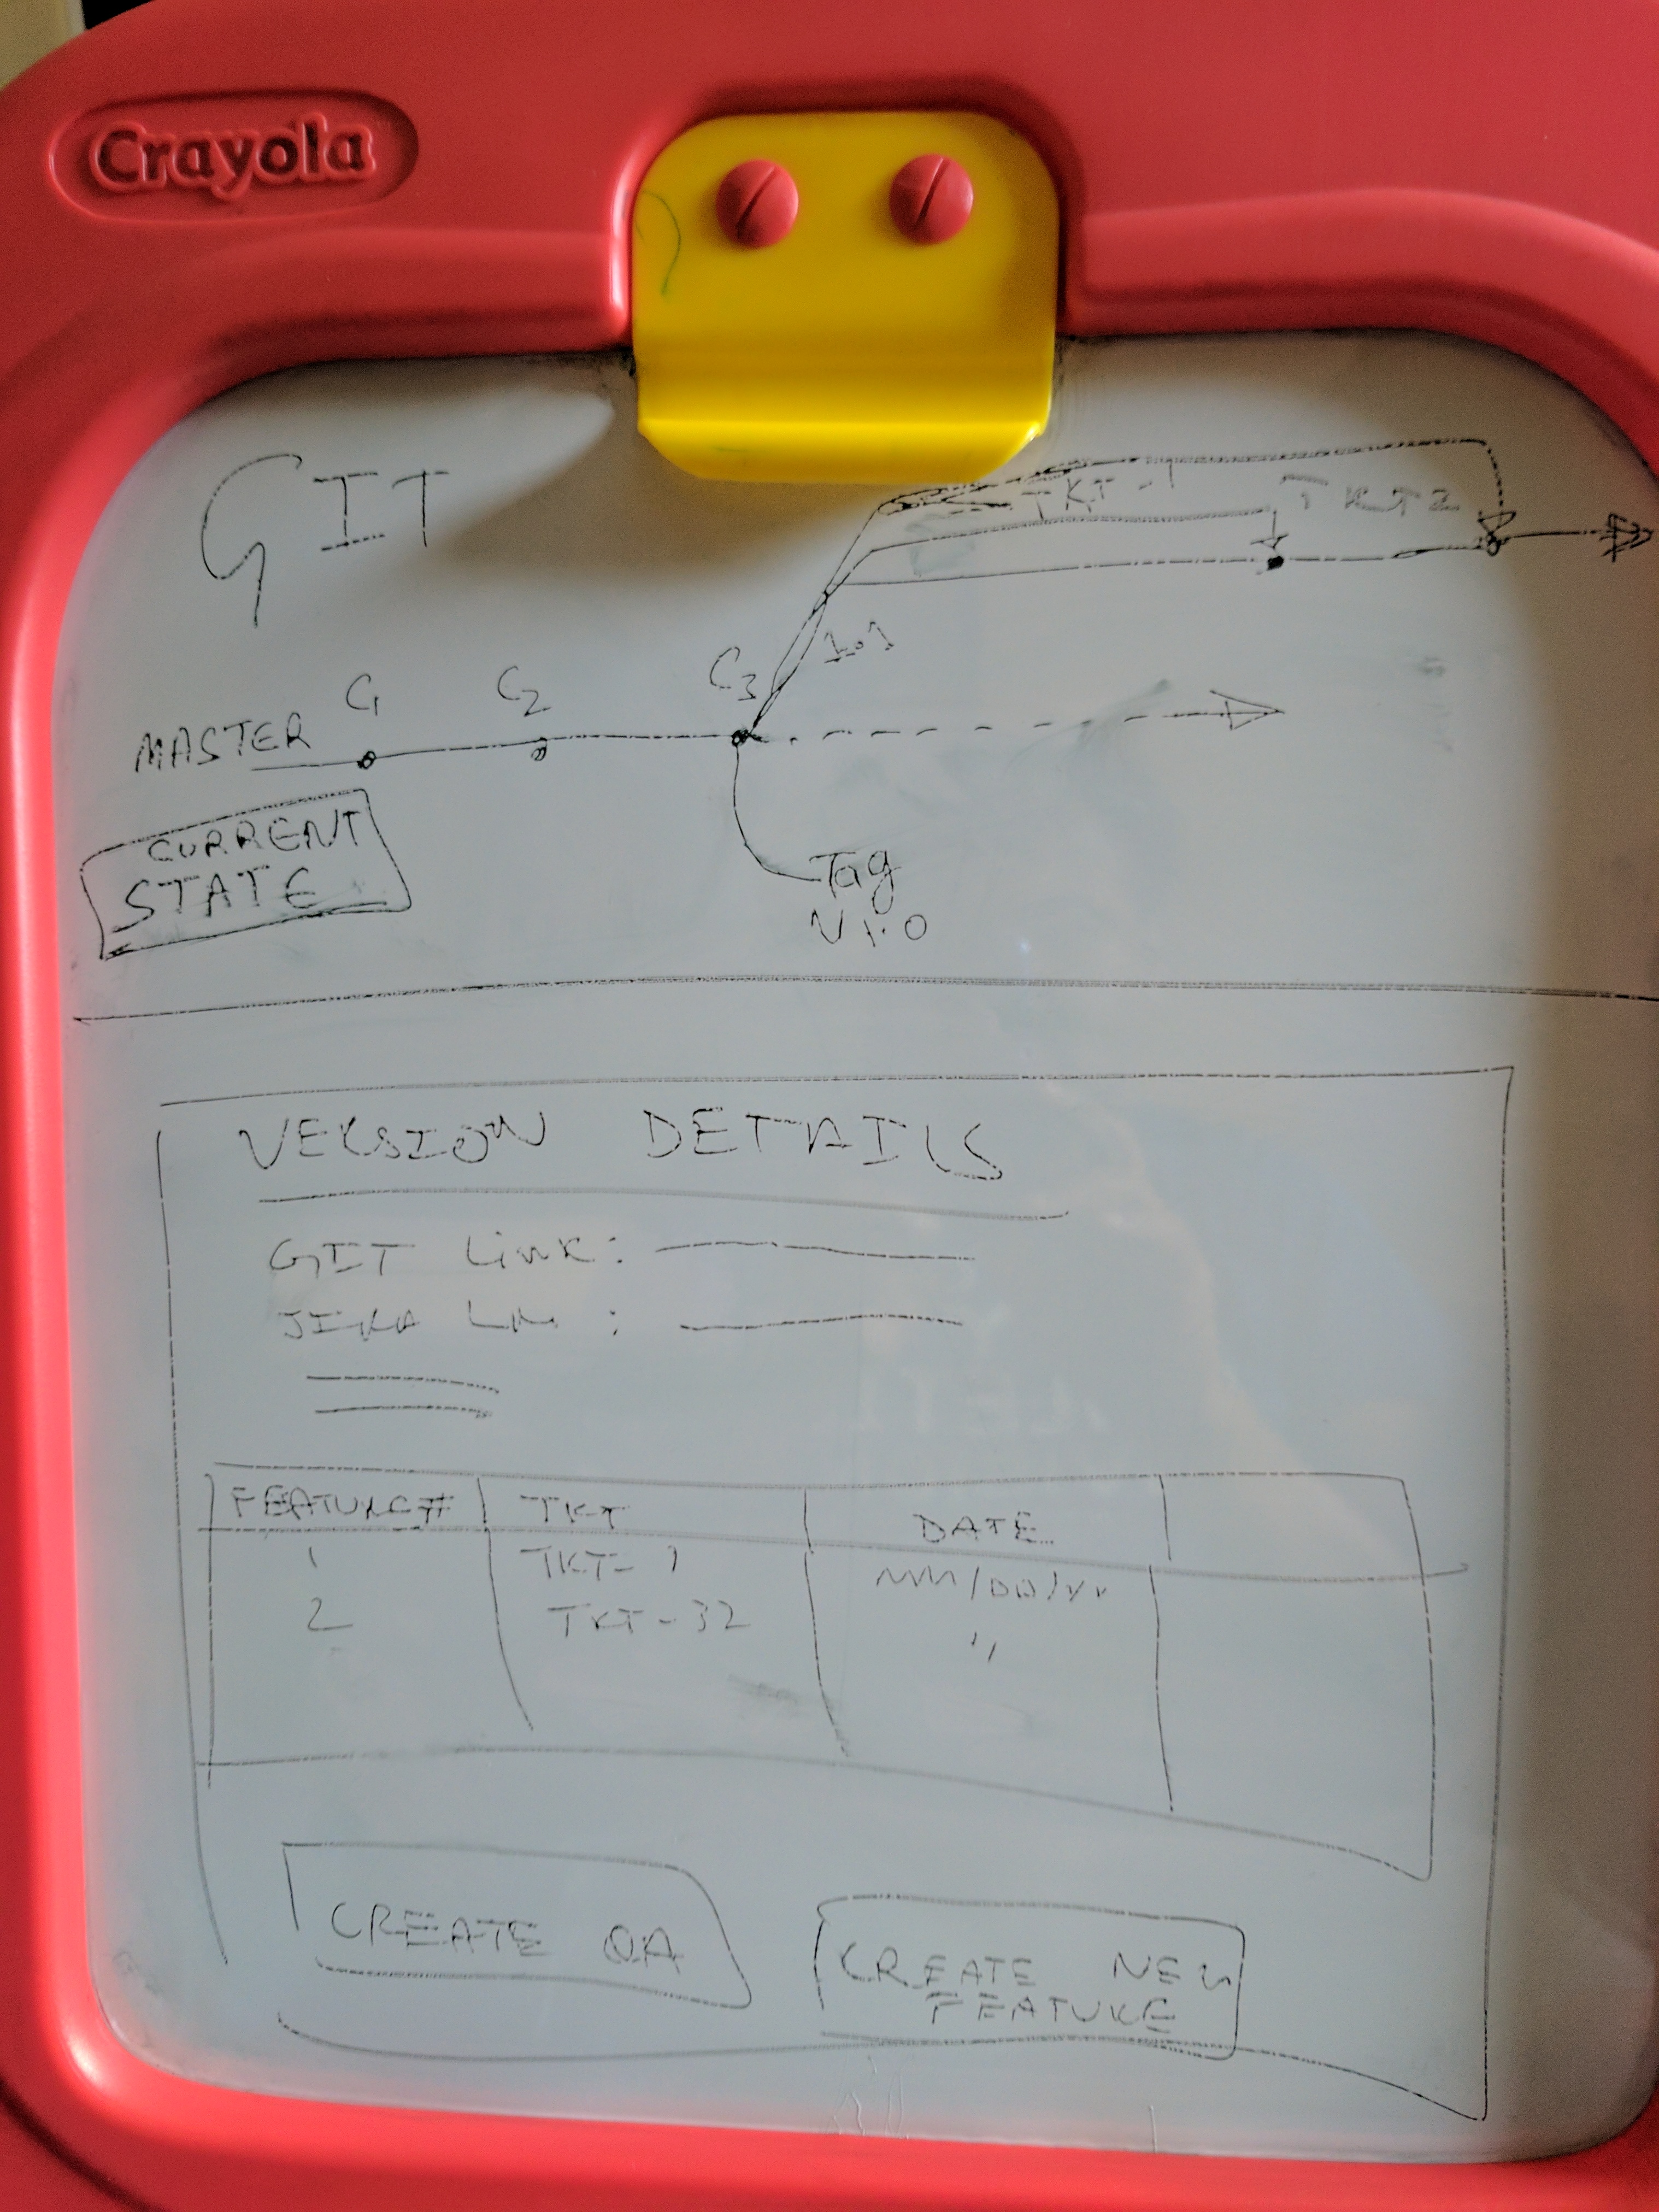 Crayola
GIT
TKT-1
1.1
MASTER C1 C2 C3
CURRENT
STATE
Tag
V1.0
VERSION DETAILS
GIT Link:
JIRA :
FEATURE# TKT DATE
1 TKT-1 MM/DD/YY
2 TKT-32 "
CREATE QA
CREATE NEW
FEATURE